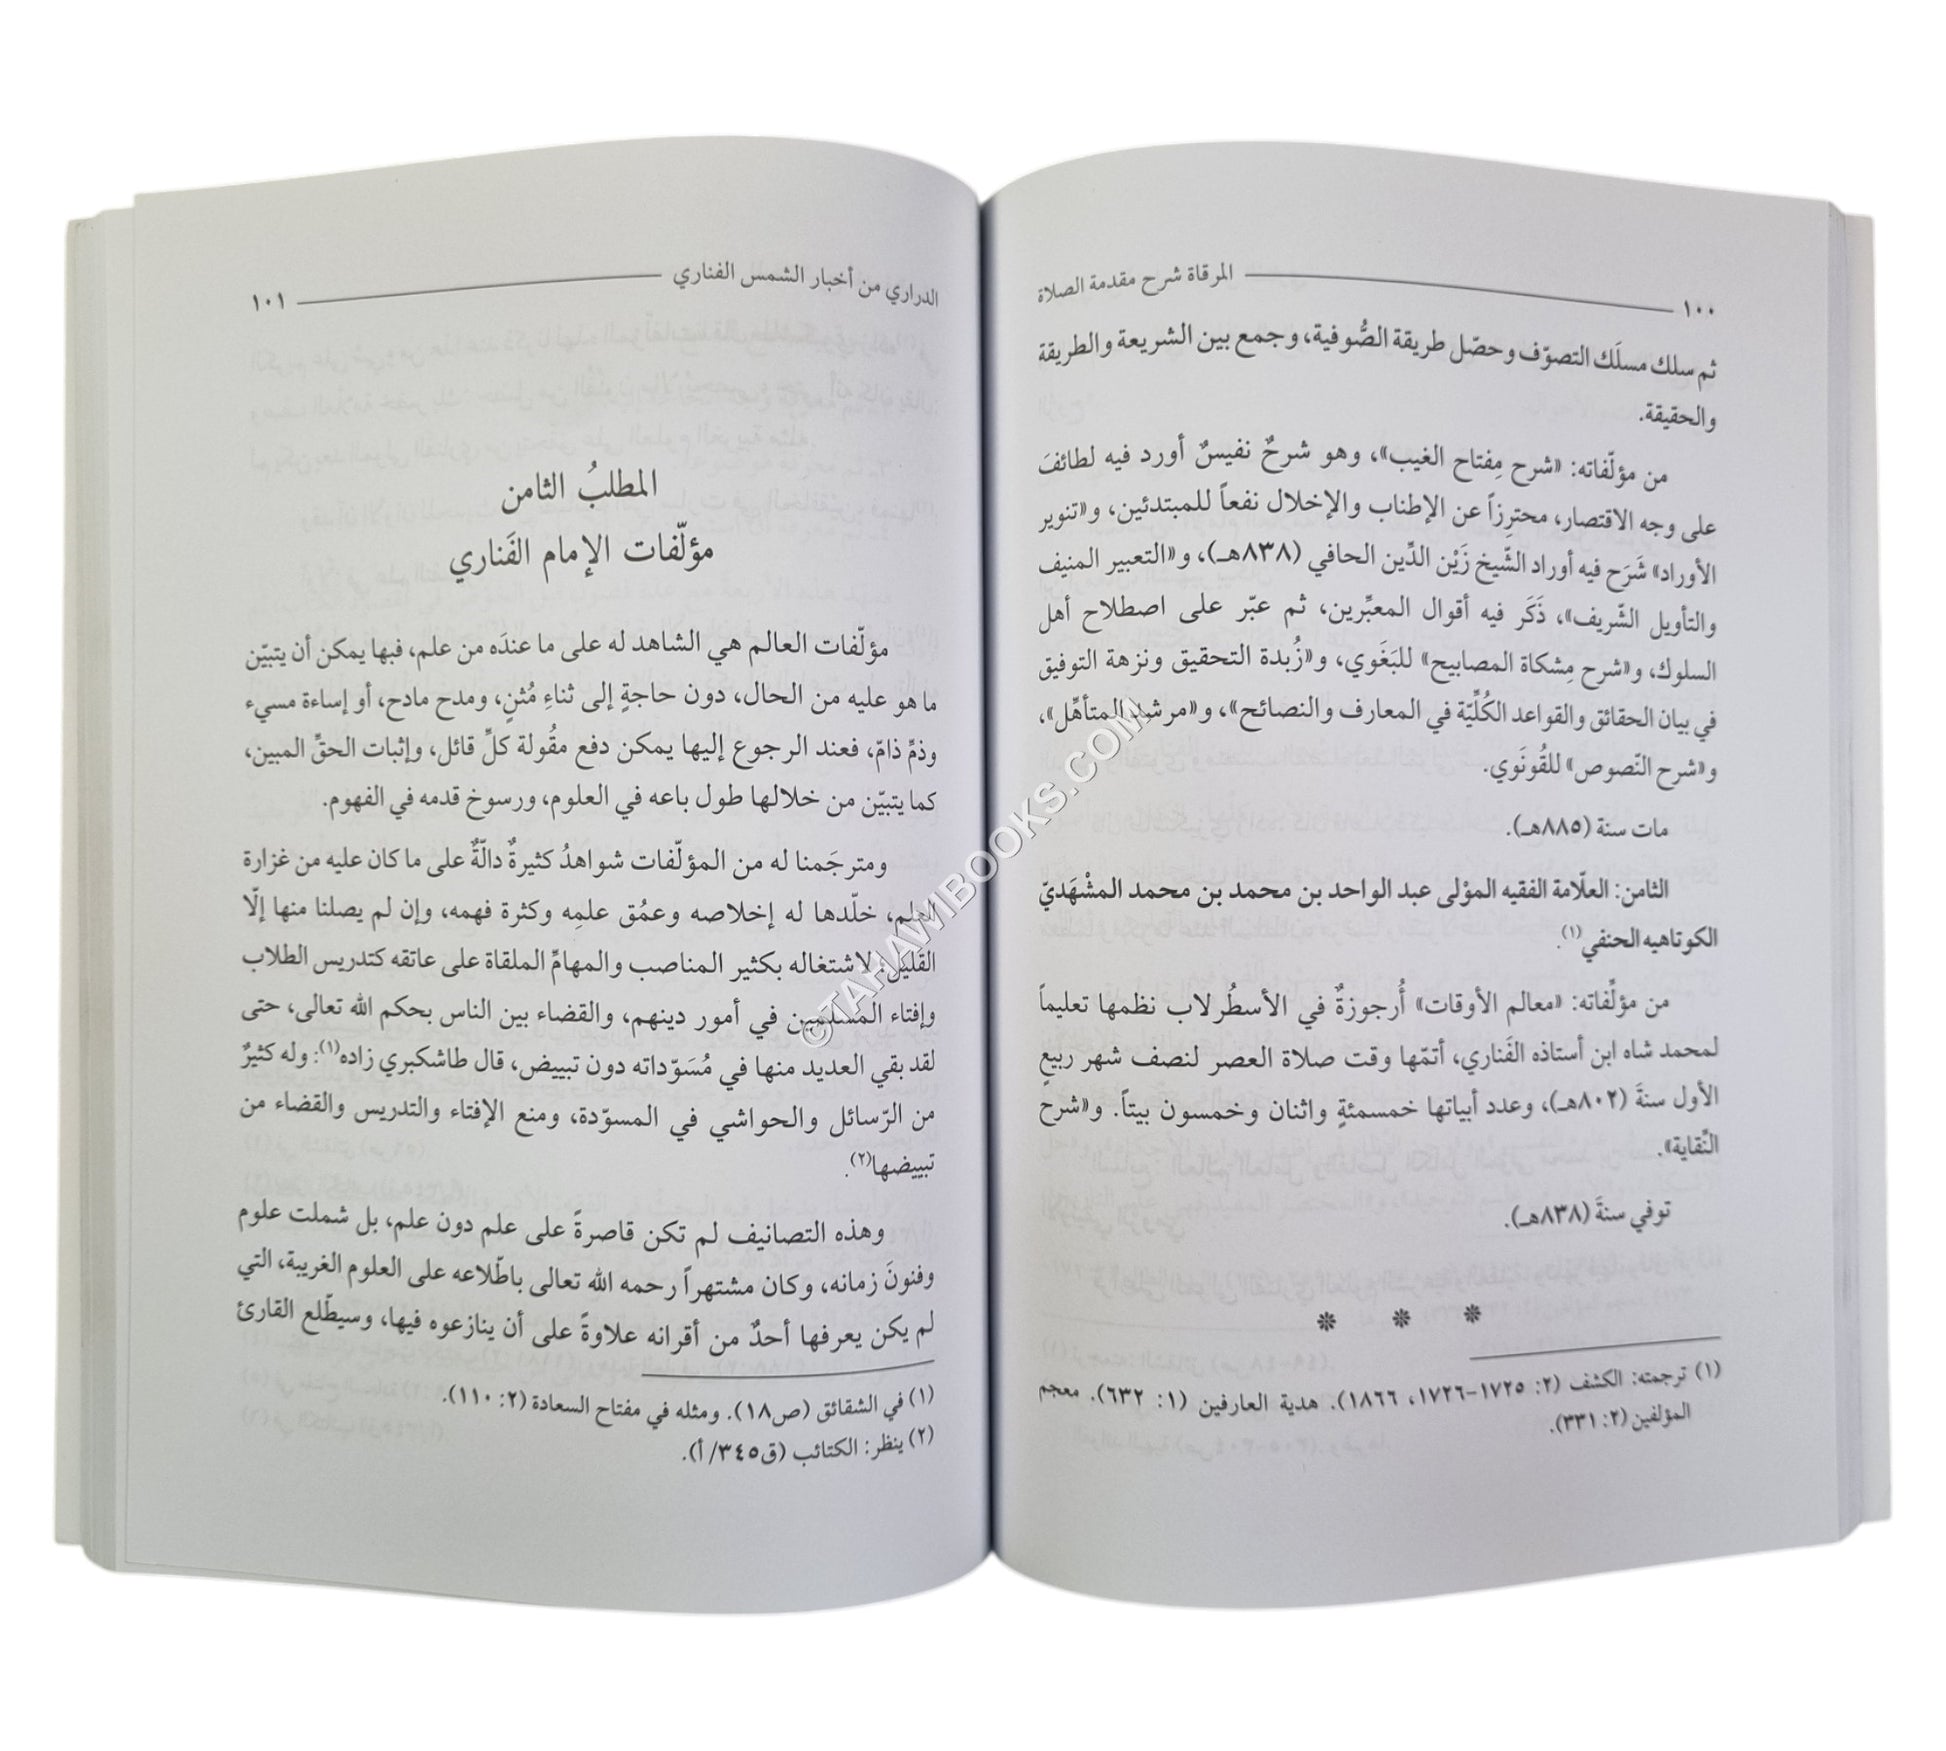 ١٠٠ المرقاة شرح مقدمة الصلاة
ثم سلك مسلَك التصوّف وحصّل طريقة الصُّوفية، وجمع بين الشريعة والطريقة
والحقيقة.
من مؤلّفاته: «شرح مِفتاح الغيب»، وهو شرحٌ نفيسٌ أورد فيه لطائفَ
على وجه الاقتصار، محترِزاً عن الإطناب والإخلال نفعاً للمبتدئين، و«تنوير
الأوراد» شَرَح فيه أوراد الشّيخ زَيْن الدِّين الحافي (٨٣٨هـ)، و«التعبير المنيف
والتأويل الشّريف»، ذَكَر فيه أقوال المعبِّرين، ثم عبّر على اصطلاح أهل
السلوك، و«شرح مِشكاة المصابيح» للبَغَوي، و«زُبدة التحقيق ونزهة التوفيق
في بيان الحقائق والقواعد الكُلِّيّة في المعارف والنصائح»، و«مرشد المتأهّل»،
و«شرح النّصوص» للقُونَوي.
مات سنة (٨٨٥هـ).
الثامن: العلّامة الفقيه المؤلى عبد الواحد بن محمد بن محمد المشْهَديّ
الكوتاهيه الحنفي(١).
من مؤلّفاته: «معالم الأوقات» أُرجوزةٌ في الأسطُرلاب نظمها تعليماً
لمحمد شاه ابن أستاذه الفَناري، أتمّها وقت صلاة العصر لنصف شهر ربيعٍ
الأول سنةَ (٨٠٢هـ)، وعدد أبياتها خمسمئةٍ واثنان وخمسون بيتاً. و«شرح
النِّقاية».
توفي سنةَ (٨٣٨هـ).
* * *
(١) ترجمته: الكشف (٢: ١٧٢٥-١٧٢٦، ١٨٦٦). هدية العارفين (١: ٦٣٢). معجم
المؤلفين (٢: ٣٣١).
الدراري من أخبار الشمس الفناري ١٠١
المطلبُ الثامن
مؤلّفات الإمام الفَناري
مؤلّفات العالم هي الشاهد له على ما عندَه من علم، فبها يمكن أن يتبيّن
ما هو عليه من الحال، دون حاجةٍ إلى ثناءِ مُثنٍ، ومدح مادح، أو إساءة مسيء
وذمِّ ذامّ، فعند الرجوع إليها يمكن دفع مقُولة كلِّ قائل، وإثبات الحقِّ المبين،
كما يتبيّن من خلالها طول باعه في العلوم، ورسوخ قدمه في الفهوم.
ومترجَمنا له من المؤلّفات شواهدُ كثيرةٌ دالّةٌ على ما كان عليه من غزارة
العلم، خلّدها له إخلاصه وعمُق علمِه وكثرة فهمه، وإن لم يصلنا منها إلّا
القليل؛ لاشتغاله بكثير المناصب والمهامِّ الملقاة على عاتقه كتدريس الطلاب
وإفتاء المسلمين في أمور دينهم، والقضاء بين الناس بحكم الله تعالى، حتى
لقد بقي العديد منها في مُسَوّداته دون تبييض، قال طاشكبري زاده(١): وله كثيرٌ
من الرّسائل والحواشي في المسوّدة، ومنع الإفتاء والتدريس والقضاء من
تبييضها(٢).
وهذه التصانيف لم تكن قاصرةً على علم دون علم، بل شملت علوم
وفنونَ زمانه، وكان مشتهراً رحمه الله تعالى باطّلاعه على العلوم الغريبة، التي
لم يكن يعرفها أحدٌ من أقرانه علاوةً على أن ينازعوه فيها، وسيطّلع القارئ
(١) في الشقائق (ص١٨). ومثله في مفتاح السعادة (٢: ١١٠).
(٢) ينظر: الكتائب (ق٣٤٥/أ).
©TAHAWIBOOKS.COM